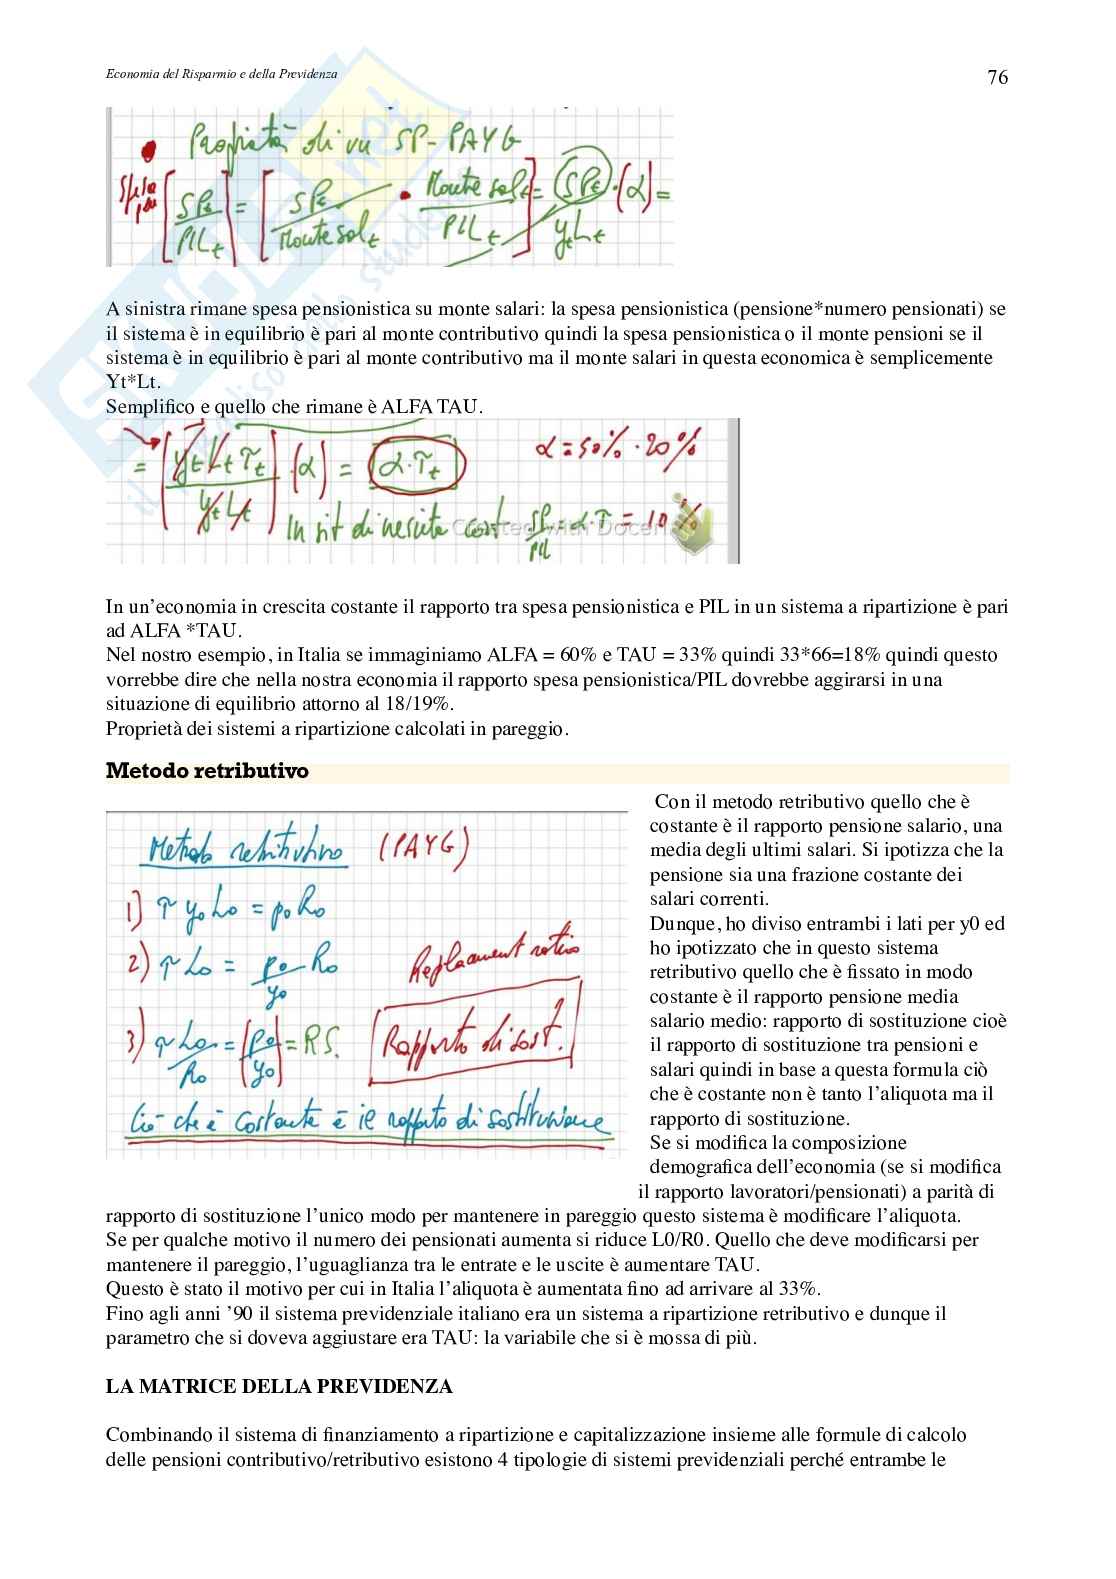 Economia del Risparmio e della Previdenza
76
Proprietà di un SP-PAYG
Spesa pen [SPt/PILt] = [SPt/Monte Salt • Monte Salt/PILt] = SPt/ytLt · (α) =
A sinistra rimane spesa pensionistica su monte salari: la spesa pensionistica (pensione*numero pensionati) se
il sistema è in equilibrio è pari al monte contributivo quindi la spesa pensionistica o il monte pensioni se il
sistema è in equilibrio è pari al monte contributivo ma il monte salari in questa economica è semplicemente
Yt*Lt.
Semplifico e quello che rimane è ALFA TAU.
= [yt Lt τt / yt Lt] · (α) = α·τt
α = 50% · 20%
In sit di crescita cost SP/PIL = α·τ = 10%
Created with Doceri
In un’economia in crescita costante il rapporto tra spesa pensionistica e PIL in un sistema a ripartizione è pari
ad ALFA *TAU.
Nel nostro esempio, in Italia se immaginiamo ALFA = 60% e TAU = 33% quindi 33*66=18% quindi questo
vorrebbe dire che nella nostra economia il rapporto spesa pensionistica/PIL dovrebbe aggirarsi in una
situazione di equilibrio attorno al 18/19%.
Proprietà dei sistemi a ripartizione calcolati in pareggio.
Metodo retributivo
Metodo retributivo (PAYG)
1) τ y0 L0 = p0 R0
2) τ L0 = p0/y0 R0
Replacement ratio
3) τ L0/R0 = (p0/y0) = RS.
Rapporto di sost.
Ciò che è costante è il rapporto di sostituzione
Con il metodo retributivo quello che è
costante è il rapporto pensione salario, una
media degli ultimi salari. Si ipotizza che la
pensione sia una frazione costante dei
salari correnti.
Dunque, ho diviso entrambi i lati per y0 ed
ho ipotizzato che in questo sistema
retributivo quello che è fissato in modo
costante è il rapporto pensione media
salario medio: rapporto di sostituzione cioè
il rapporto di sostituzione tra pensioni e
salari quindi in base a questa formula ciò
che è costante non è tanto l’aliquota ma il
rapporto di sostituzione.
Se si modifica la composizione
demografica dell’economia (se si modifica
il rapporto lavoratori/pensionati) a parità di
rapporto di sostituzione l’unico modo per mantenere in pareggio questo sistema è modificare l’aliquota.
Se per qualche motivo il numero dei pensionati aumenta si riduce L0/R0. Quello che deve modificarsi per
mantenere il pareggio, l’uguaglianza tra le entrate e le uscite è aumentare TAU.
Questo è stato il motivo per cui in Italia l’aliquota è aumentata fino ad arrivare al 33%.
Fino agli anni ’90 il sistema previdenziale italiano era un sistema a ripartizione retributivo e dunque il
parametro che si doveva aggiustare era TAU: la variabile che si è mossa di più.
LA MATRICE DELLA PREVIDENZA
Combinando il sistema di finanziamento a ripartizione e capitalizzazione insieme alle formule di calcolo
delle pensioni contributivo/retributivo esistono 4 tipologie di sistemi previdenziali perché entrambe le